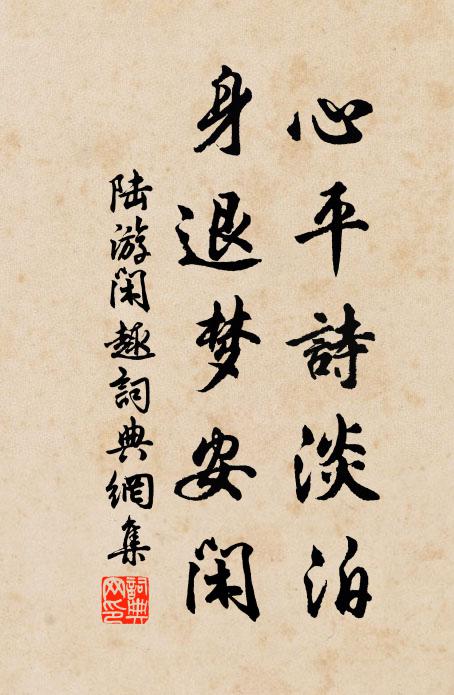 心平詩淡泊
身退梦安閑
陆游闲趣詞典網集
詞典网印